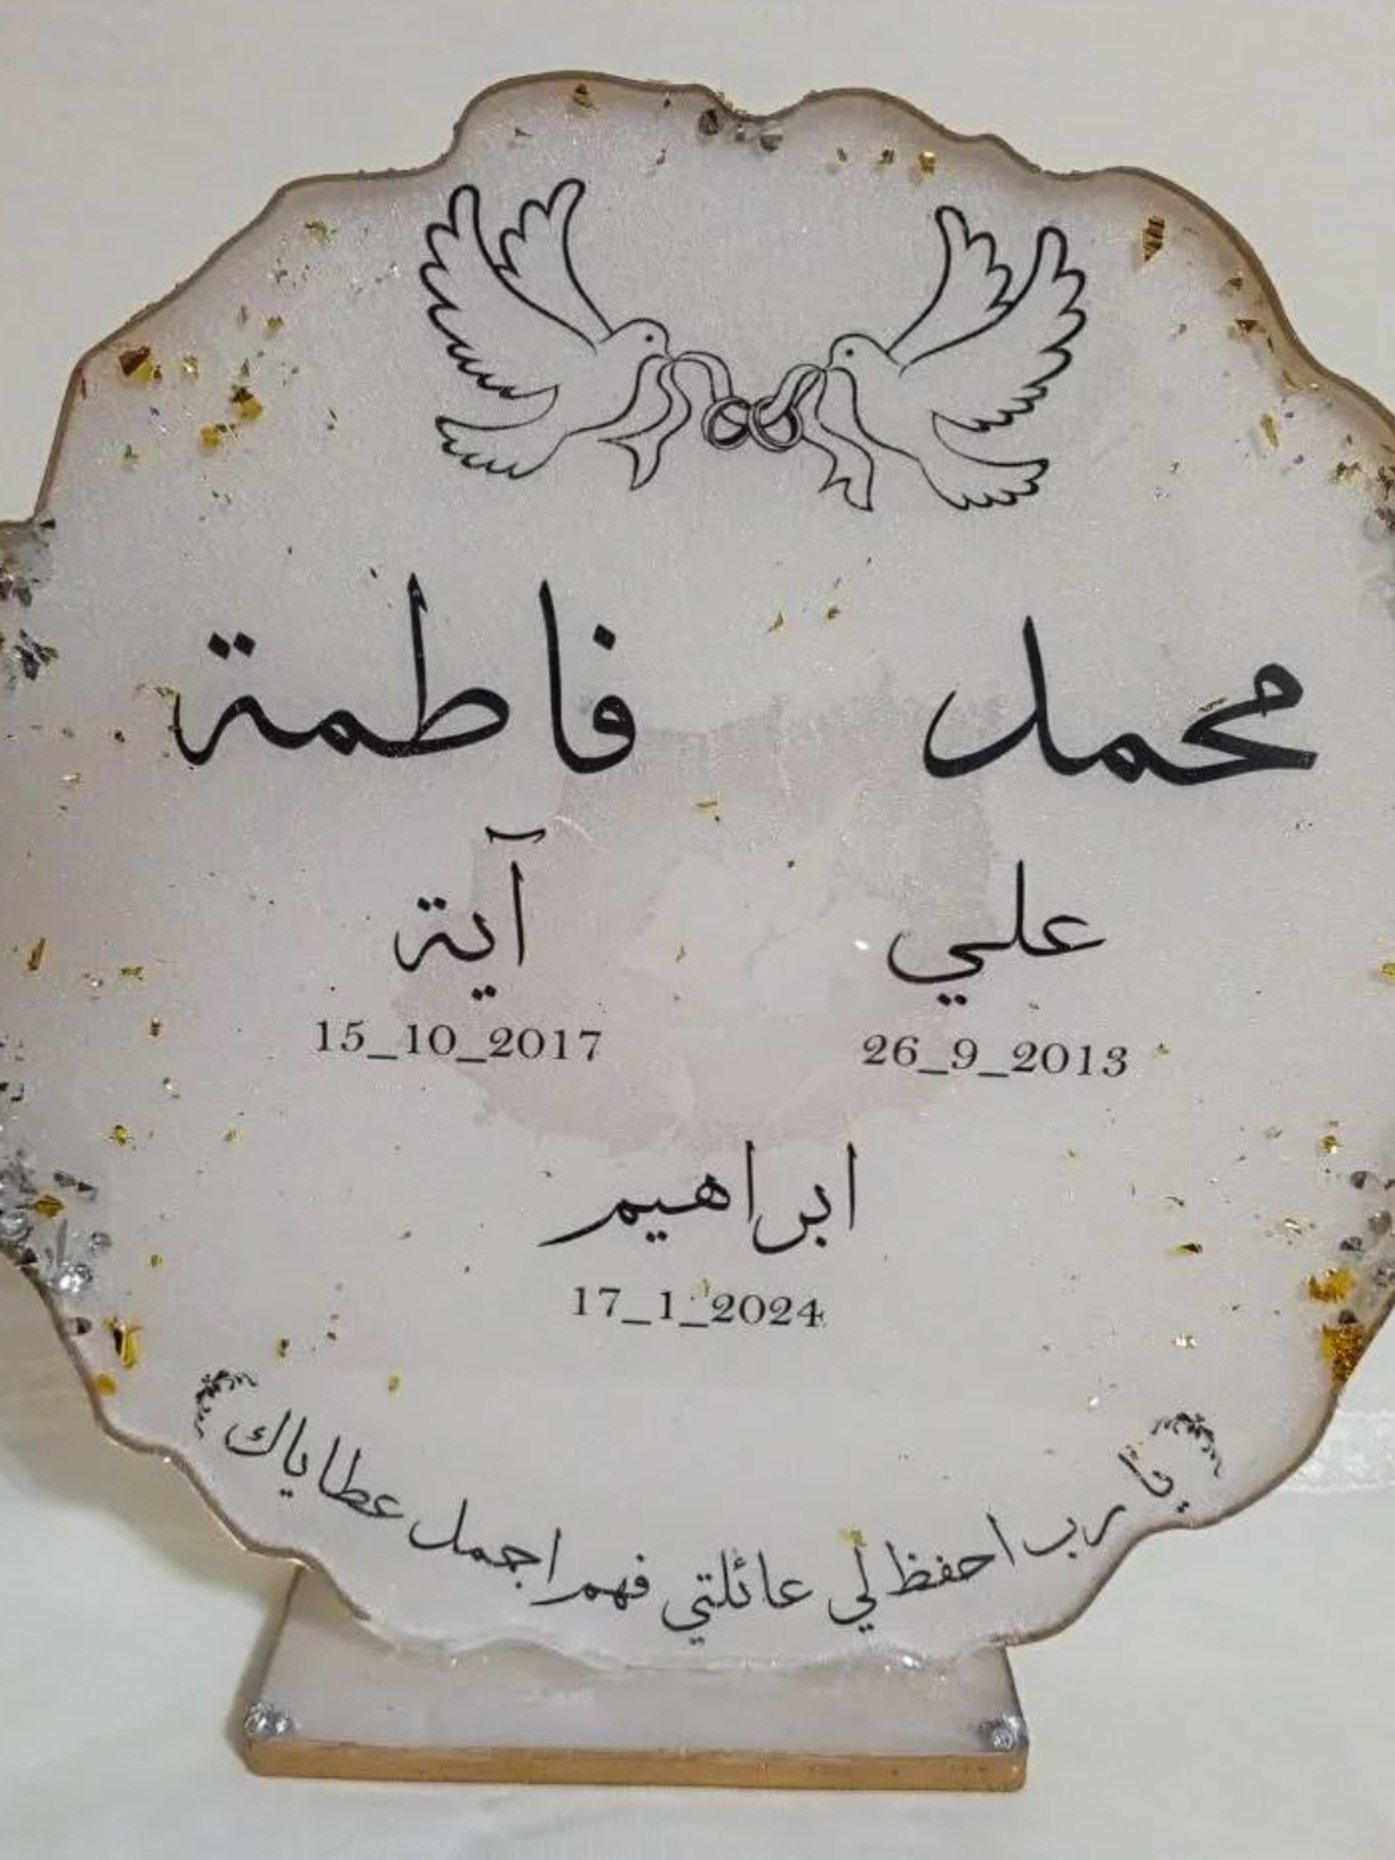 محمد فاطمة
علي آية
26_9_2013 15_10_2017
ابراهيم
17_1_2024
يا رب احفظ لي عائلتي فهم اجمل عطاياك